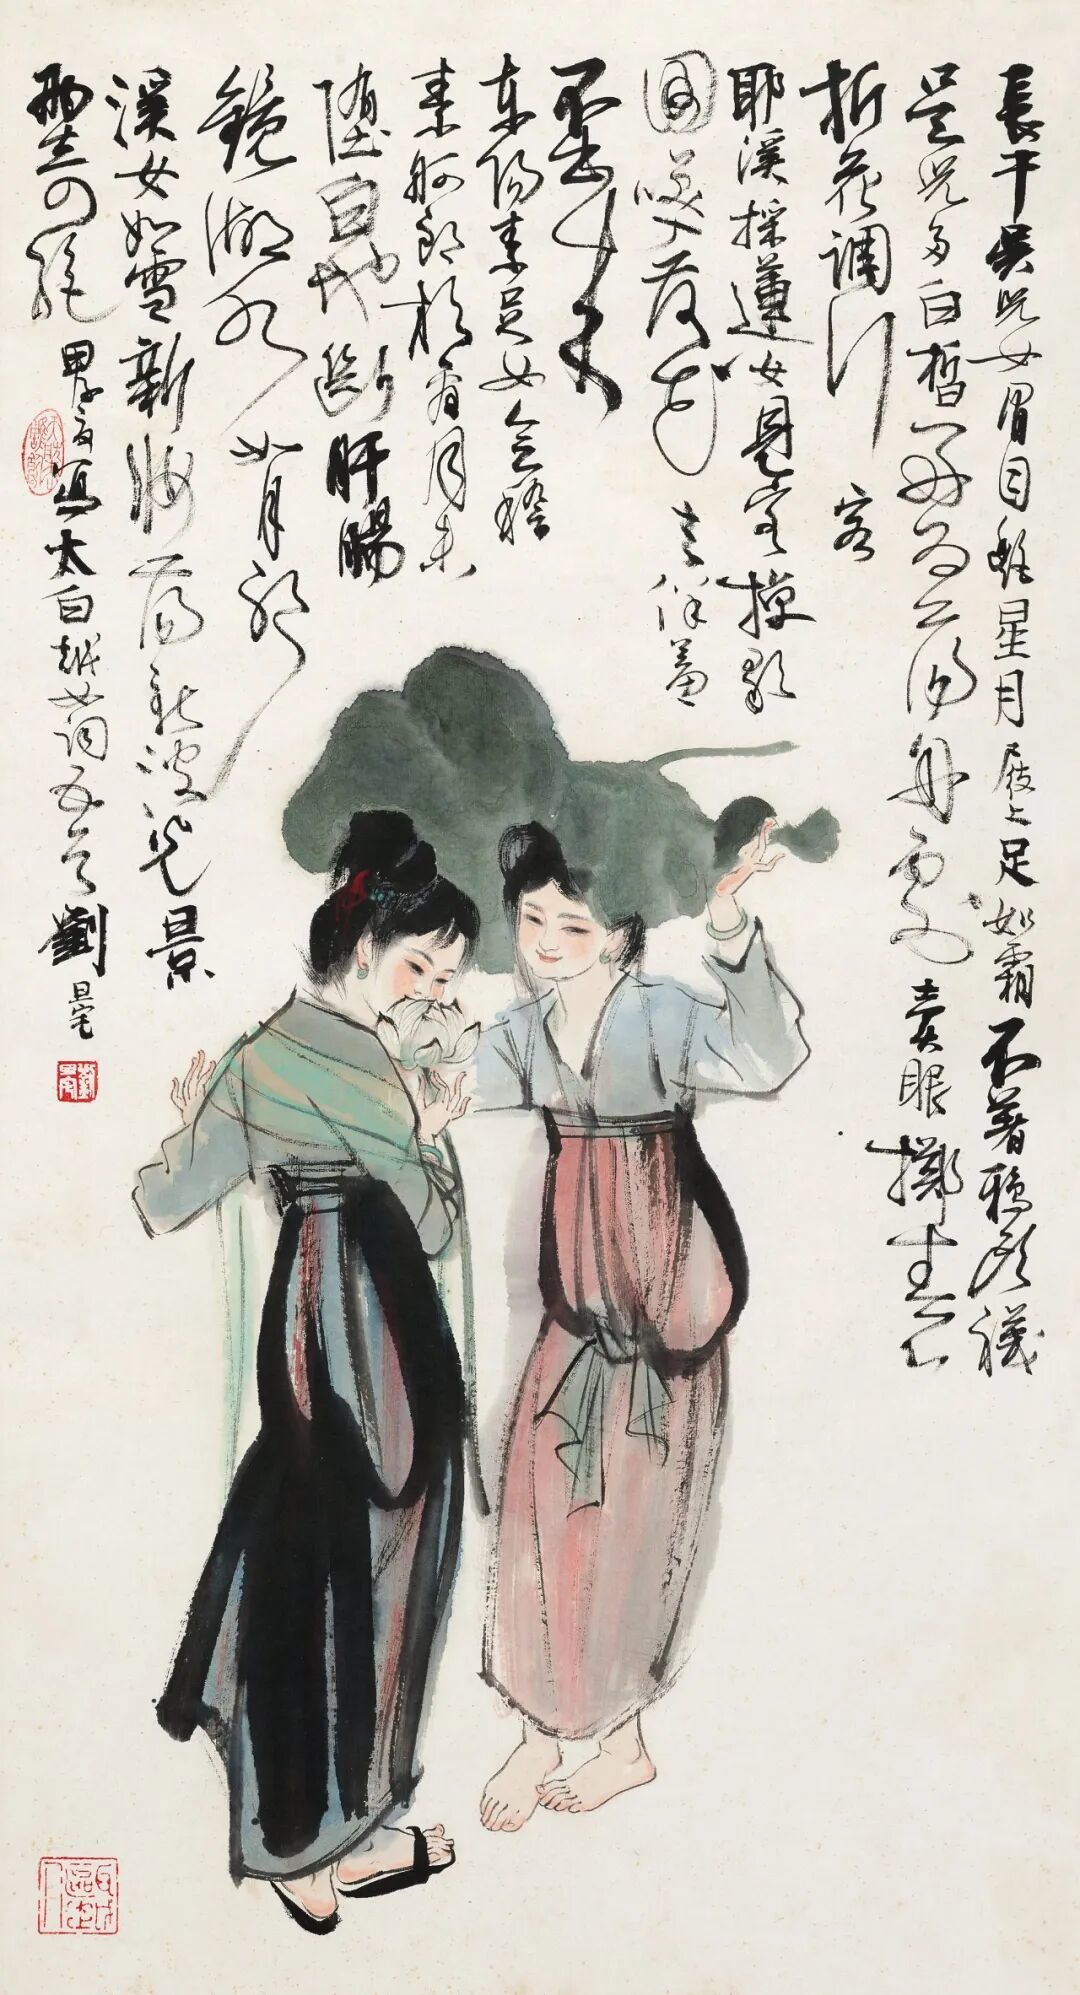 長干吳兒女眉目艷星月屐上足如霜不著鴉頭襪
吳兒多白皙好為蕩舟劇賣眼擲春心
折花調行客
耶溪採蓮女見客棹歌
回笑入荷花去佯羞
不出來
東陽素足女會稽
素舸郎相看月未
墮白地斷肝腸
鏡湖水如月耶
溪女如雪新妝蕩新波光景
兩奇絕
甲子寫太白越女詞五首 劉旦宅